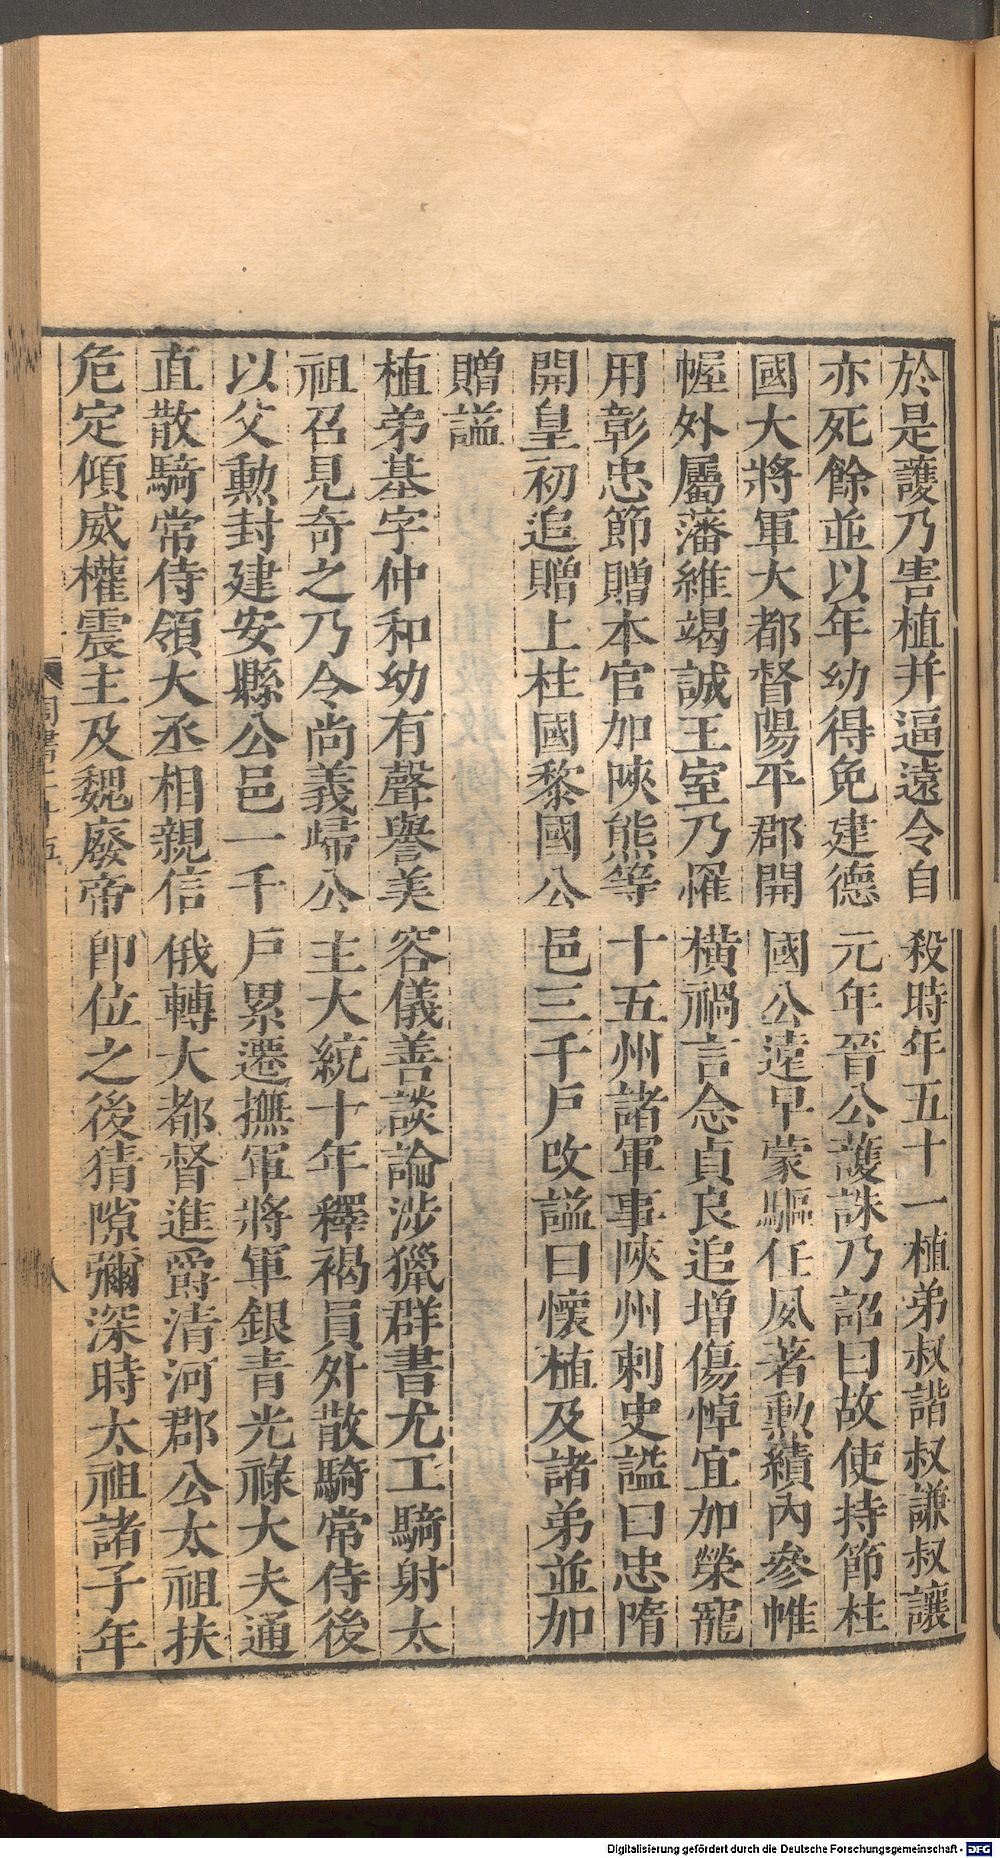 於是護乃害植并逼遠令自殺時年五十一植弟叔諧叔謙叔讓
亦死餘並以年幼得免建德元年晉公護誅乃詔曰故使持節柱
國大將軍大都督陽平郡開國公遠早蒙驅任夙著勲績內參帷
幄外屬藩維竭誠王室乃罹橫禍言念貞良追增傷悼宜加榮寵
用彰忠節贈本官加陝熊等十五州諸軍事陝州刺史謚曰忠隋
開皇初追贈上柱國黎國公邑三千戶改謚曰懷植及諸弟並加
贈謚
植弟基字仲和幼有聲譽美容儀善談論涉獵群書尤工騎射太
祖召見奇之乃令尚義歸公主大統十年釋褐員外散騎常侍後
以父勲封建安縣公邑一千戶累遷撫軍將軍銀青光祿大夫通
直散騎常侍領大丞相親信俄轉大都督進爵清河郡公太祖扶
危定傾威權震主及魏廢帝即位之後猜隙彌深時太祖諸子年
八
Digitalisierung gefördert durch die Deutsche Forschungsgemeinschaft - DFG